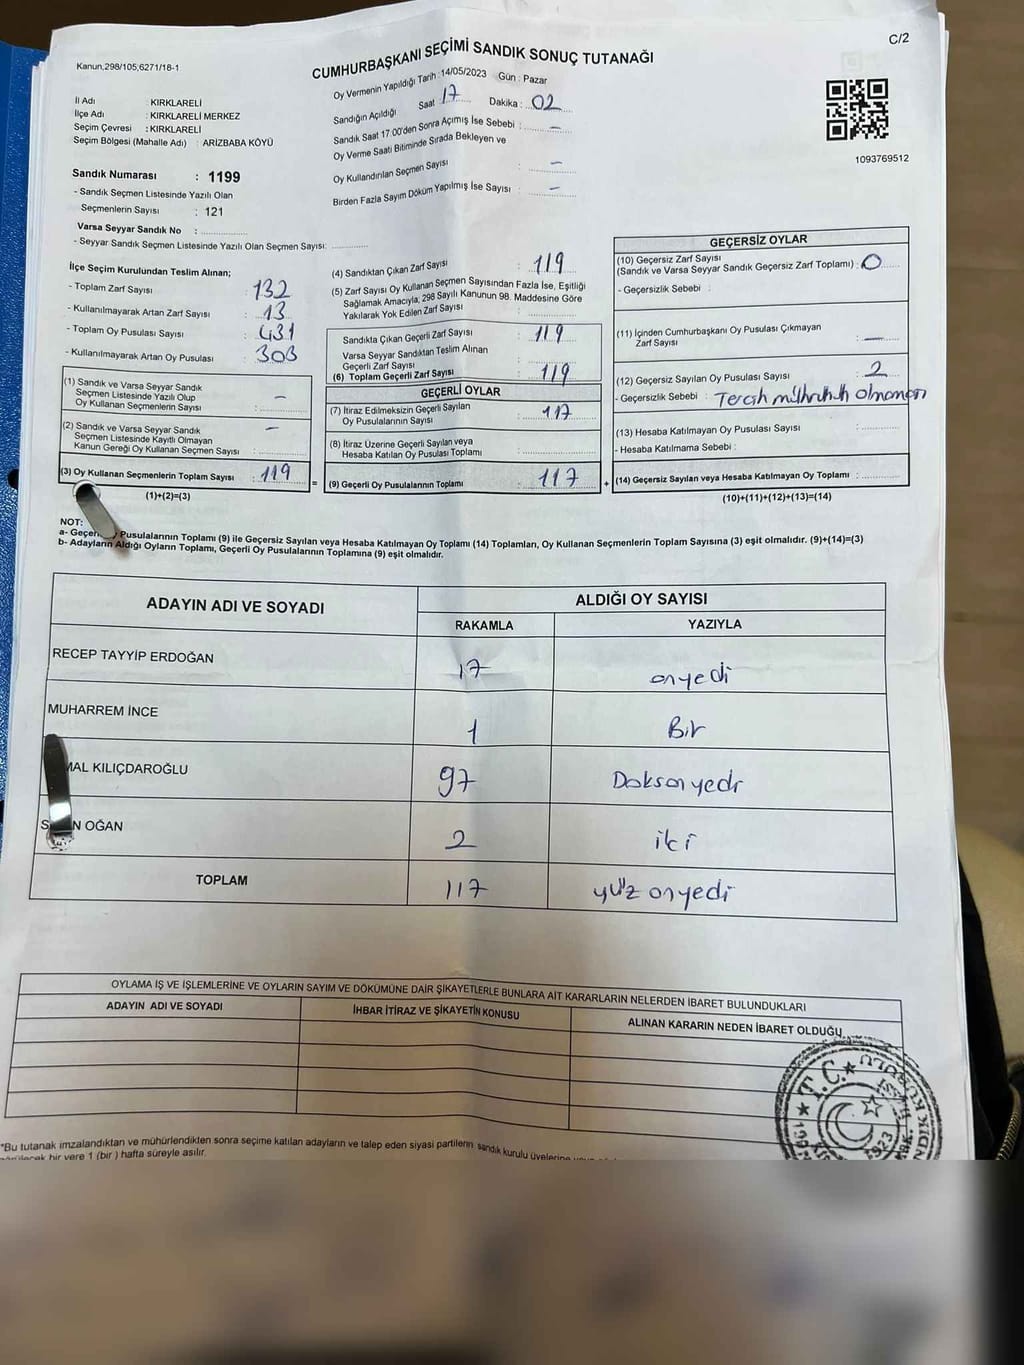 C/2
Kanun,298/105;6271/18-1
CUMHURBAŞKANI SEÇİMİ SANDIK SONUÇ TUTANAĞI
Oy Vermenin Yapıldığı Tarih : 14/05/2023 Gün : Pazar
Sandığın Açıldığı Saat 17 Dakika : 02
Sandık Saat 17.00'den Sonra Açımış İse Sebebi : –
Oy Verme Saati Bitiminde Sırada Bekleyen ve
Oy Kullandırılan Seçmen Sayısı : –
Birden Fazla Sayım Döküm Yapılmış İse Sayısı : –
1093769512
İl Adı : KIRKLARELİ
İlçe Adı : KIRKLARELİ MERKEZ
Seçim Çevresi : KIRKLARELİ
Seçim Bölgesi (Mahalle Adı) : ARIZBABA KÖYÜ
Sandık Numarası : 1199
- Sandık Seçmen Listesinde Yazılı Olan
Seçmenlerin Sayısı : 121
Varsa Seyyar Sandık No :
- Seyyar Sandık Seçmen Listesinde Yazılı Olan Seçmen Sayısı:
İlçe Seçim Kurulundan Teslim Alınan;
- Toplam Zarf Sayısı : 132
- Kullanılmayarak Artan Zarf Sayısı : 13
- Toplam Oy Pusulası Sayısı : 431
- Kullanılmayarak Artan Oy Pusulası : 303
(1) Sandık ve Varsa Seyyar Sandık
Seçmen Listesinde Yazılı Olup
Oy Kullanan Seçmenlerin Sayısı : –
(2) Sandık ve Varsa Seyyar Sandık
Seçmen Listesinde Kayıtlı Olmayan
Kanun Gereği Oy Kullanan Seçmen Sayısı : –
(3) Oy Kullanan Seçmenlerin Toplam Sayısı : 119
(1)+(2)=(3)
(4) Sandıktan Çıkan Zarf Sayısı : 119
(5) Zarf Sayısı Oy Kullanan Seçmen Sayısından Fazla İse, Eşitliği
Sağlamak Amacıyla, 298 Sayılı Kanunun 98. Maddesine Göre
Yakılarak Yok Edilen Zarf Sayısı :
Sandıkta Çıkan Geçerli Zarf Sayısı : 119
Varsa Seyyar Sandıktan Teslim Alınan
Geçerli Zarf Sayısı :
(6) Toplam Geçerli Zarf Sayısı : 119
GEÇERLİ OYLAR
(7) İtiraz Edilmeksizin Geçerli Sayılan
Oy Pusulasının Sayısı : 117
(8) İtiraz Üzerine Geçerli Sayılan veya
Hesaba Katılan Oy Pusulası Toplamı :
= (9) Geçerli Oy Pusulalarının Toplamı : 117 +
GEÇERSİZ OYLAR
(10) Geçersiz Zarf Sayısı
(Sandık ve Varsa Seyyar Sandık Geçersiz Zarf Toplamı) : 0
- Geçersizlik Sebebi :
(11) İçinden Cumhurbaşkanı Oy Pusulası Çıkmayan
Zarf Sayısı : –
(12) Geçersiz Sayılan Oy Pusulası Sayısı : 2
- Geçersizlik Sebebi : Tercih
(13) Hesaba Katılmayan Oy Pusulası Sayısı :
- Hesaba Katılmama Sebebi :
(14) Geçersiz Sayılan veya Hesaba Katılmayan Oy Toplamı :
(10)+(11)+(12)+(13)=(14)
NOT:
a- Pusulalarının Toplamı (9) ile Geçersiz Sayılan veya Hesaba Katılmayan Oy Toplamı (14) Toplamları, Oy Kullanan Seçmenlerin Toplam Sayısına (3) eşit olmalıdır. (9)+(14)=(3)
b- Adayların Aldığı Oyların Toplamı, Geçerli Oy Pusulalarının Toplamına (9) eşit olmalıdır.
ADAYIN ADI VE SOYADI ALDIĞI OY SAYISI
RAKAMLA YAZIYLA
RECEP TAYYİP ERDOĞAN 17 onyedi
MUHARREM İNCE 1 Bir
MAL KILIÇDAROĞLU 97 Doksanyedi
S N OĞAN 2 iki
TOPLAM 117 yüz onyedi
OYLAMA İŞ VE İŞLEMLERİNE VE OYLARIN SAYIM VE DÖKÜMÜNE DAİR ŞİKAYETLERLE BUNLARA AİT KARARLARIN NELERDEN İBARET BULUNDUKLARI
ADAYIN ADI VE SOYADI İHBAR İTİRAZ VE ŞİKAYETİN KONUSU ALINAN KARARIN NEDEN İBARET OLDUĞU
★ T.C. ★
1923
*Bu tutanak imzalandıktan ve mühürlendikten sonra seçime katılan adayların ve talep eden siyasi partilerin sandık kurulu üyelerine
bir yere 1 (bir ) hafta süreyle asılır.